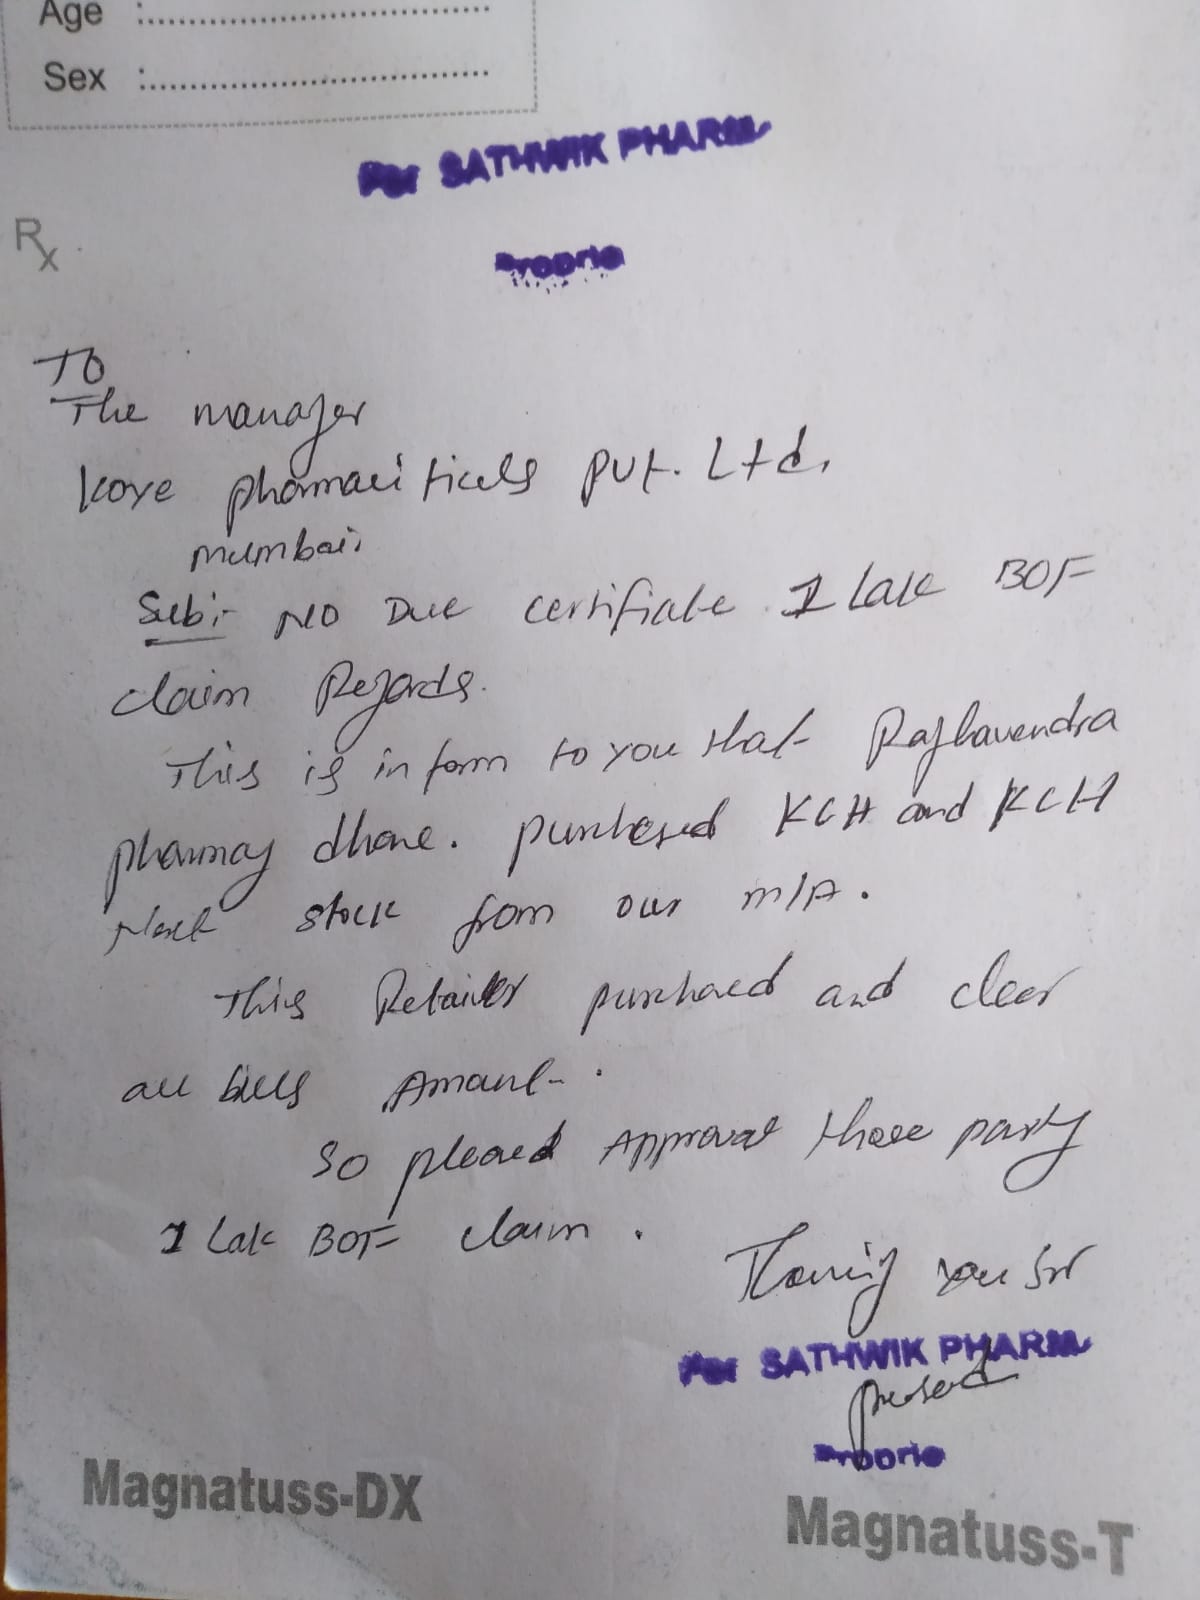 Age :
Sex :
For SATHWIK PHARMA
Proprie
Rx
To
The manager
Koye pharmaciticals pvt. Ltd.
mumbai,
Sub:- NO Due certificate 1 Lak BOF
claim Regards.
This is inform to you that Raghavendra
pharmay dhone. purchased KCH and KCH
Next stock from our m/A.
This Retailer purchased and clear
all bills Amount.
So pleased Approval these party
1 Lak BOF claim.
you Sir
For SATHWIK PHARMA
Proprie
Magnatuss-DX
Magnatuss-T